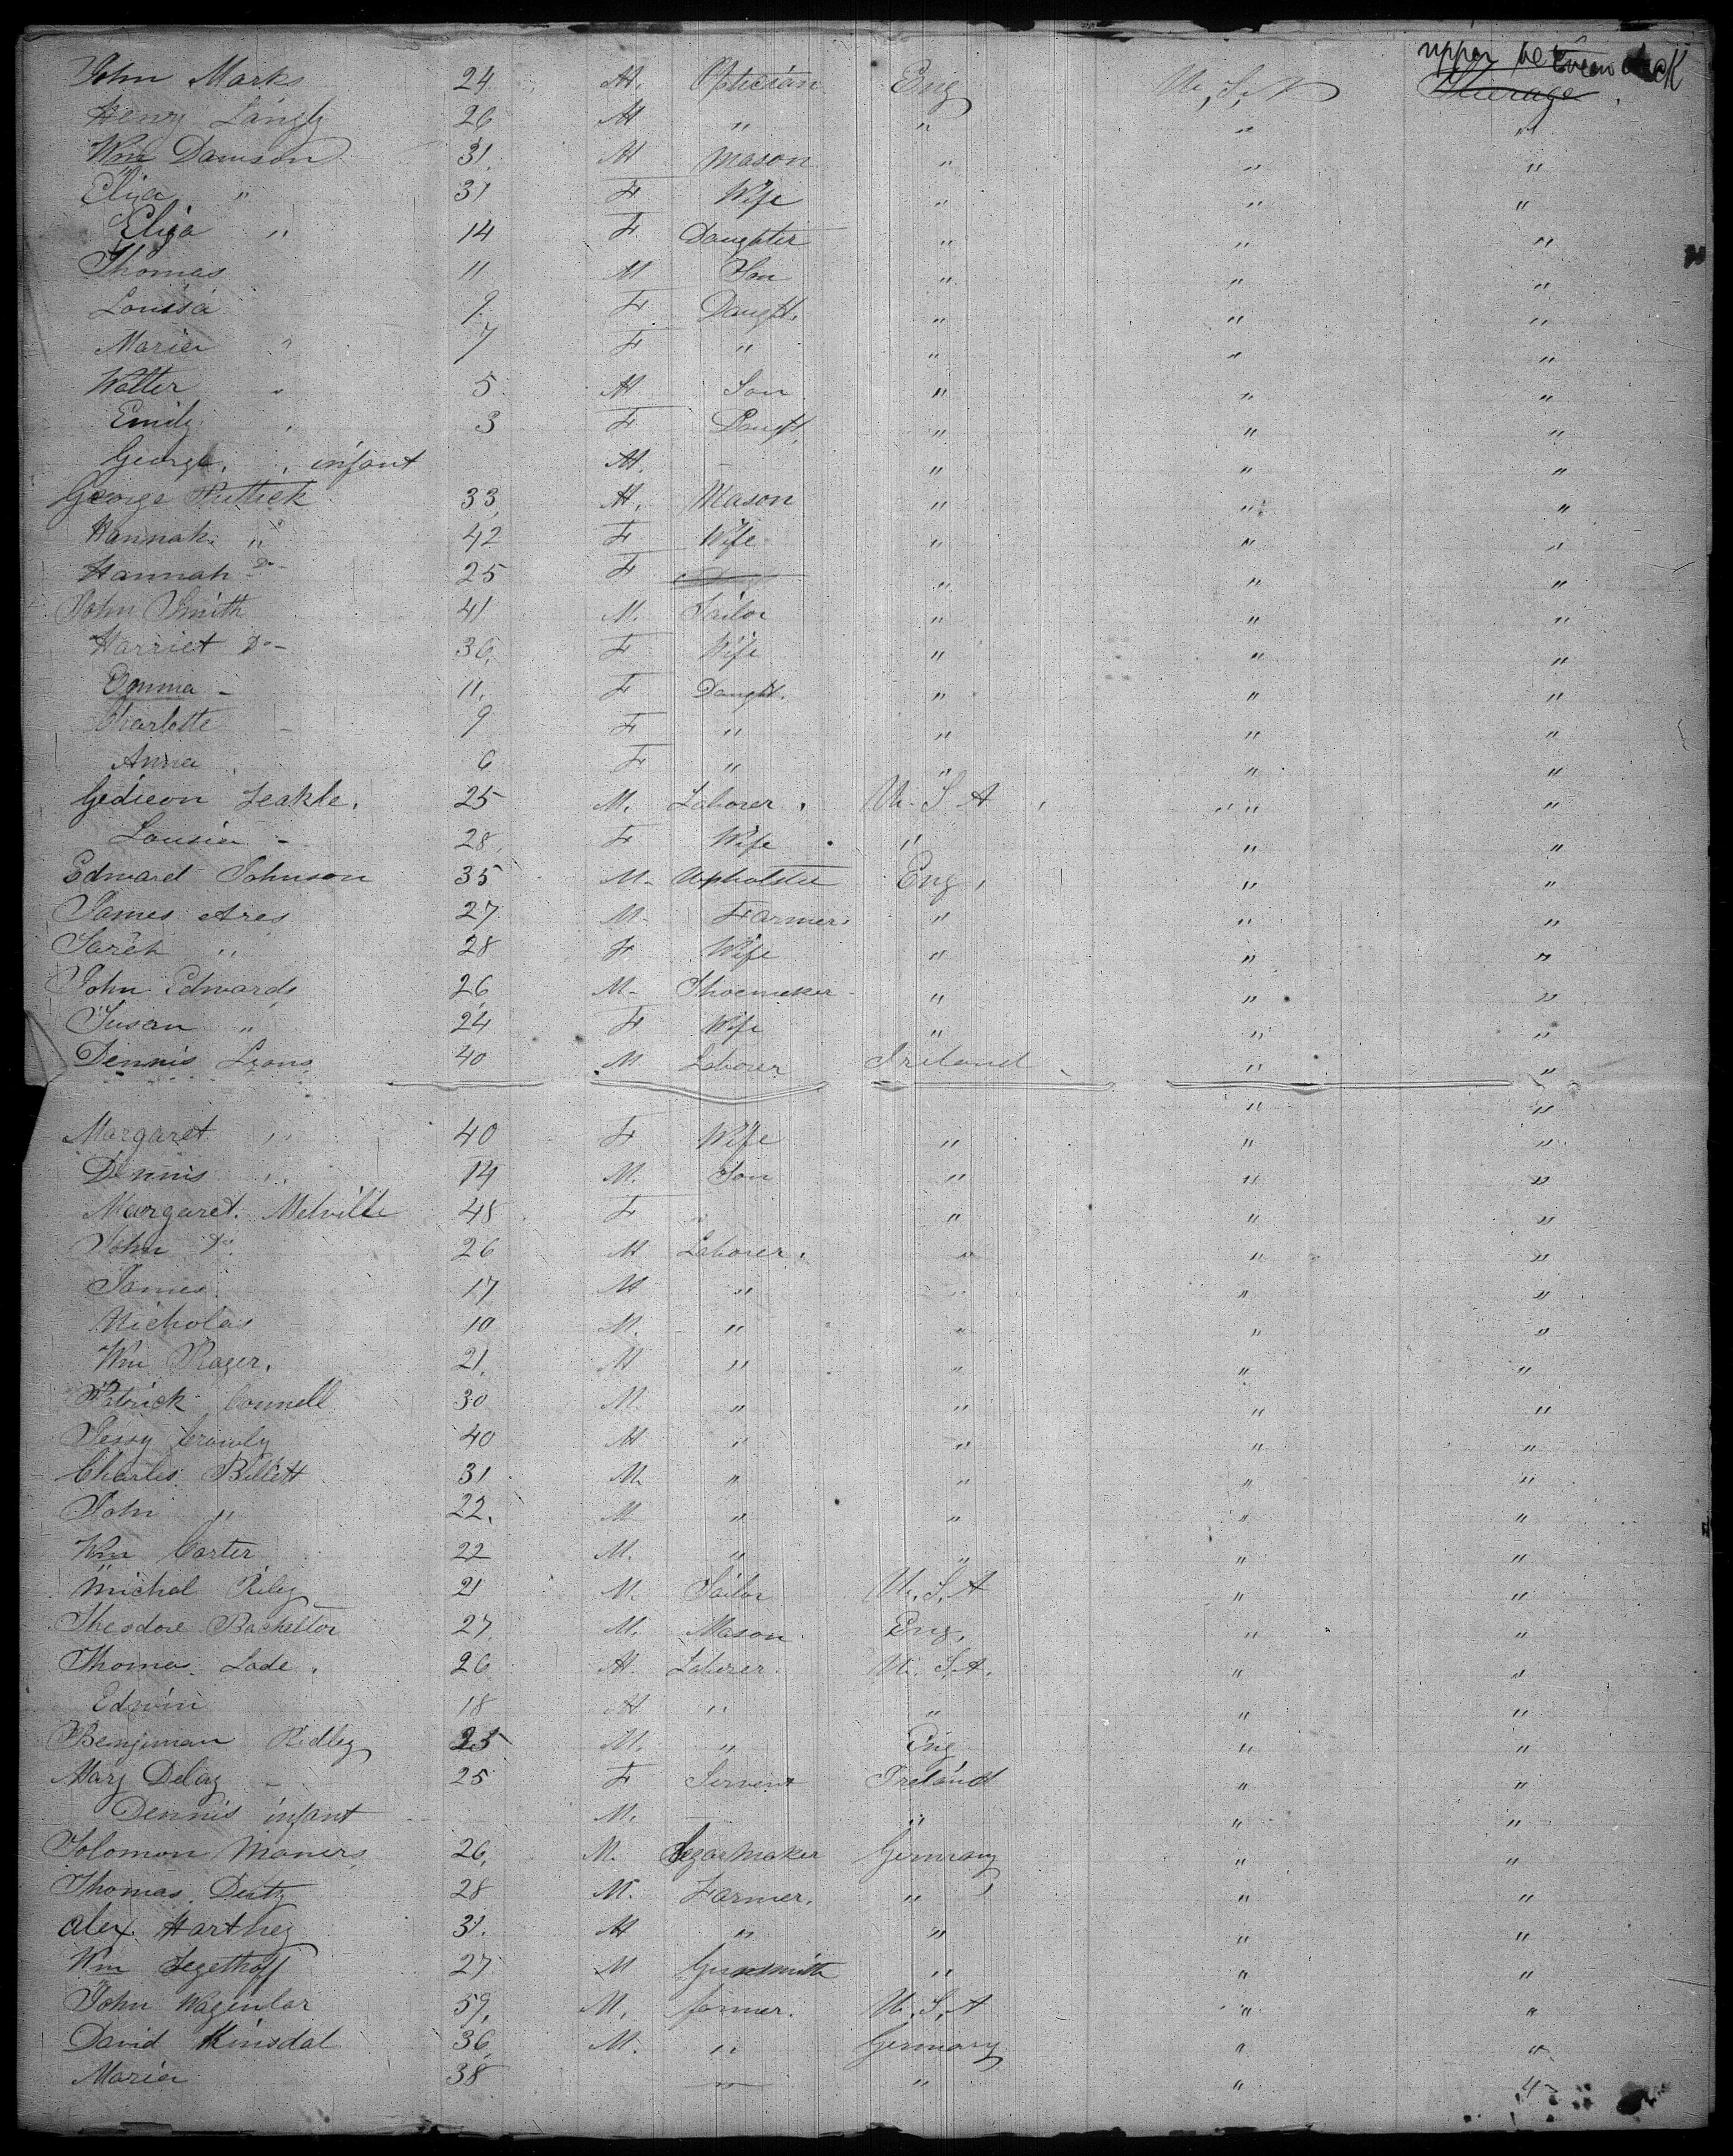 upper between deck
John Marks 24 M. Optician Eng U.S.A Steerage
Henry Langly 26 M " " " "
Wm Dawson 31 M Mason " " "
Eliza " 31 F Wife " " "
Eliza " 14 F Daughter " " "
Thomas 11 M Son " " "
Louisa 9 F Daught. " " "
Maria " 7 F " " " "
Walter " 5 M Son " " "
Emily " 3 F Daught. " " "
George, " infant M. - " " "
George Puttick 33 M. Mason " " "
Hannah " 42 F Wife " " "
Hannah Do- 25 F " " "
John Smith 41 M. Tailor " " "
Harriet Do- 36 F Wife " " "
Emma - 11. F Daught. " " "
Charlotte - 9 F " " " "
Anna 6 F " " " "
Gedieon Leakle. 25 M. Laborer. U.S.A " "
Lousia - 28. F Wife " " "
Edward Johnson 35 M. Upholster Eng. " "
James Ares 27 M. Farmer " " "
Sarah " 28 F Wife " " "
John Edwards 26 M. Shoemaker " " "
Susan " 24 F Wife " " "
Dennis Lyons 40 M Laborer Ireland " "
" "
Margaret " 40 F Wife " " "
Dennis " 14 M. Son " " "
Margaret Melville 48 F " " "
John Do. 26 M Laborer. " " "
James 17 M " " " "
Nicholas - 10 M. " " " "
Wm Rager. 21 M " " " "
Patrick Connell 30 M. " " " "
Jerry Crowly 40 M " " " "
Charles Billett 31 M. " " " "
John " 22. M " " " "
Wm Carter 22 M. " " " "
Michal Riley 21 M. Tailor U.S.A " "
Theodore Bachellor 27 M. Mason Eng. " "
Thomas Lade. 26 M. Laborer. U.S.A. " "
Edwin 18 M " " " "
Benjiman Ridley 25 M. " Eng " "
Mary Delay - 25 F Servent Ireland " "
Dennis infant M. - " " "
Solomon Maners 26. M. Segar Maker Germany " "
Thomas Deitz 28 M. Farmer. " " "
Alex Harthey 31. M " " " "
Wm Segethoff 27 M Gunsmith " " "
John Wagenlar 59. M. farmer. U.S.A " "
David Kinsdal 36 M. " Germany " "
Maria 38 " " "